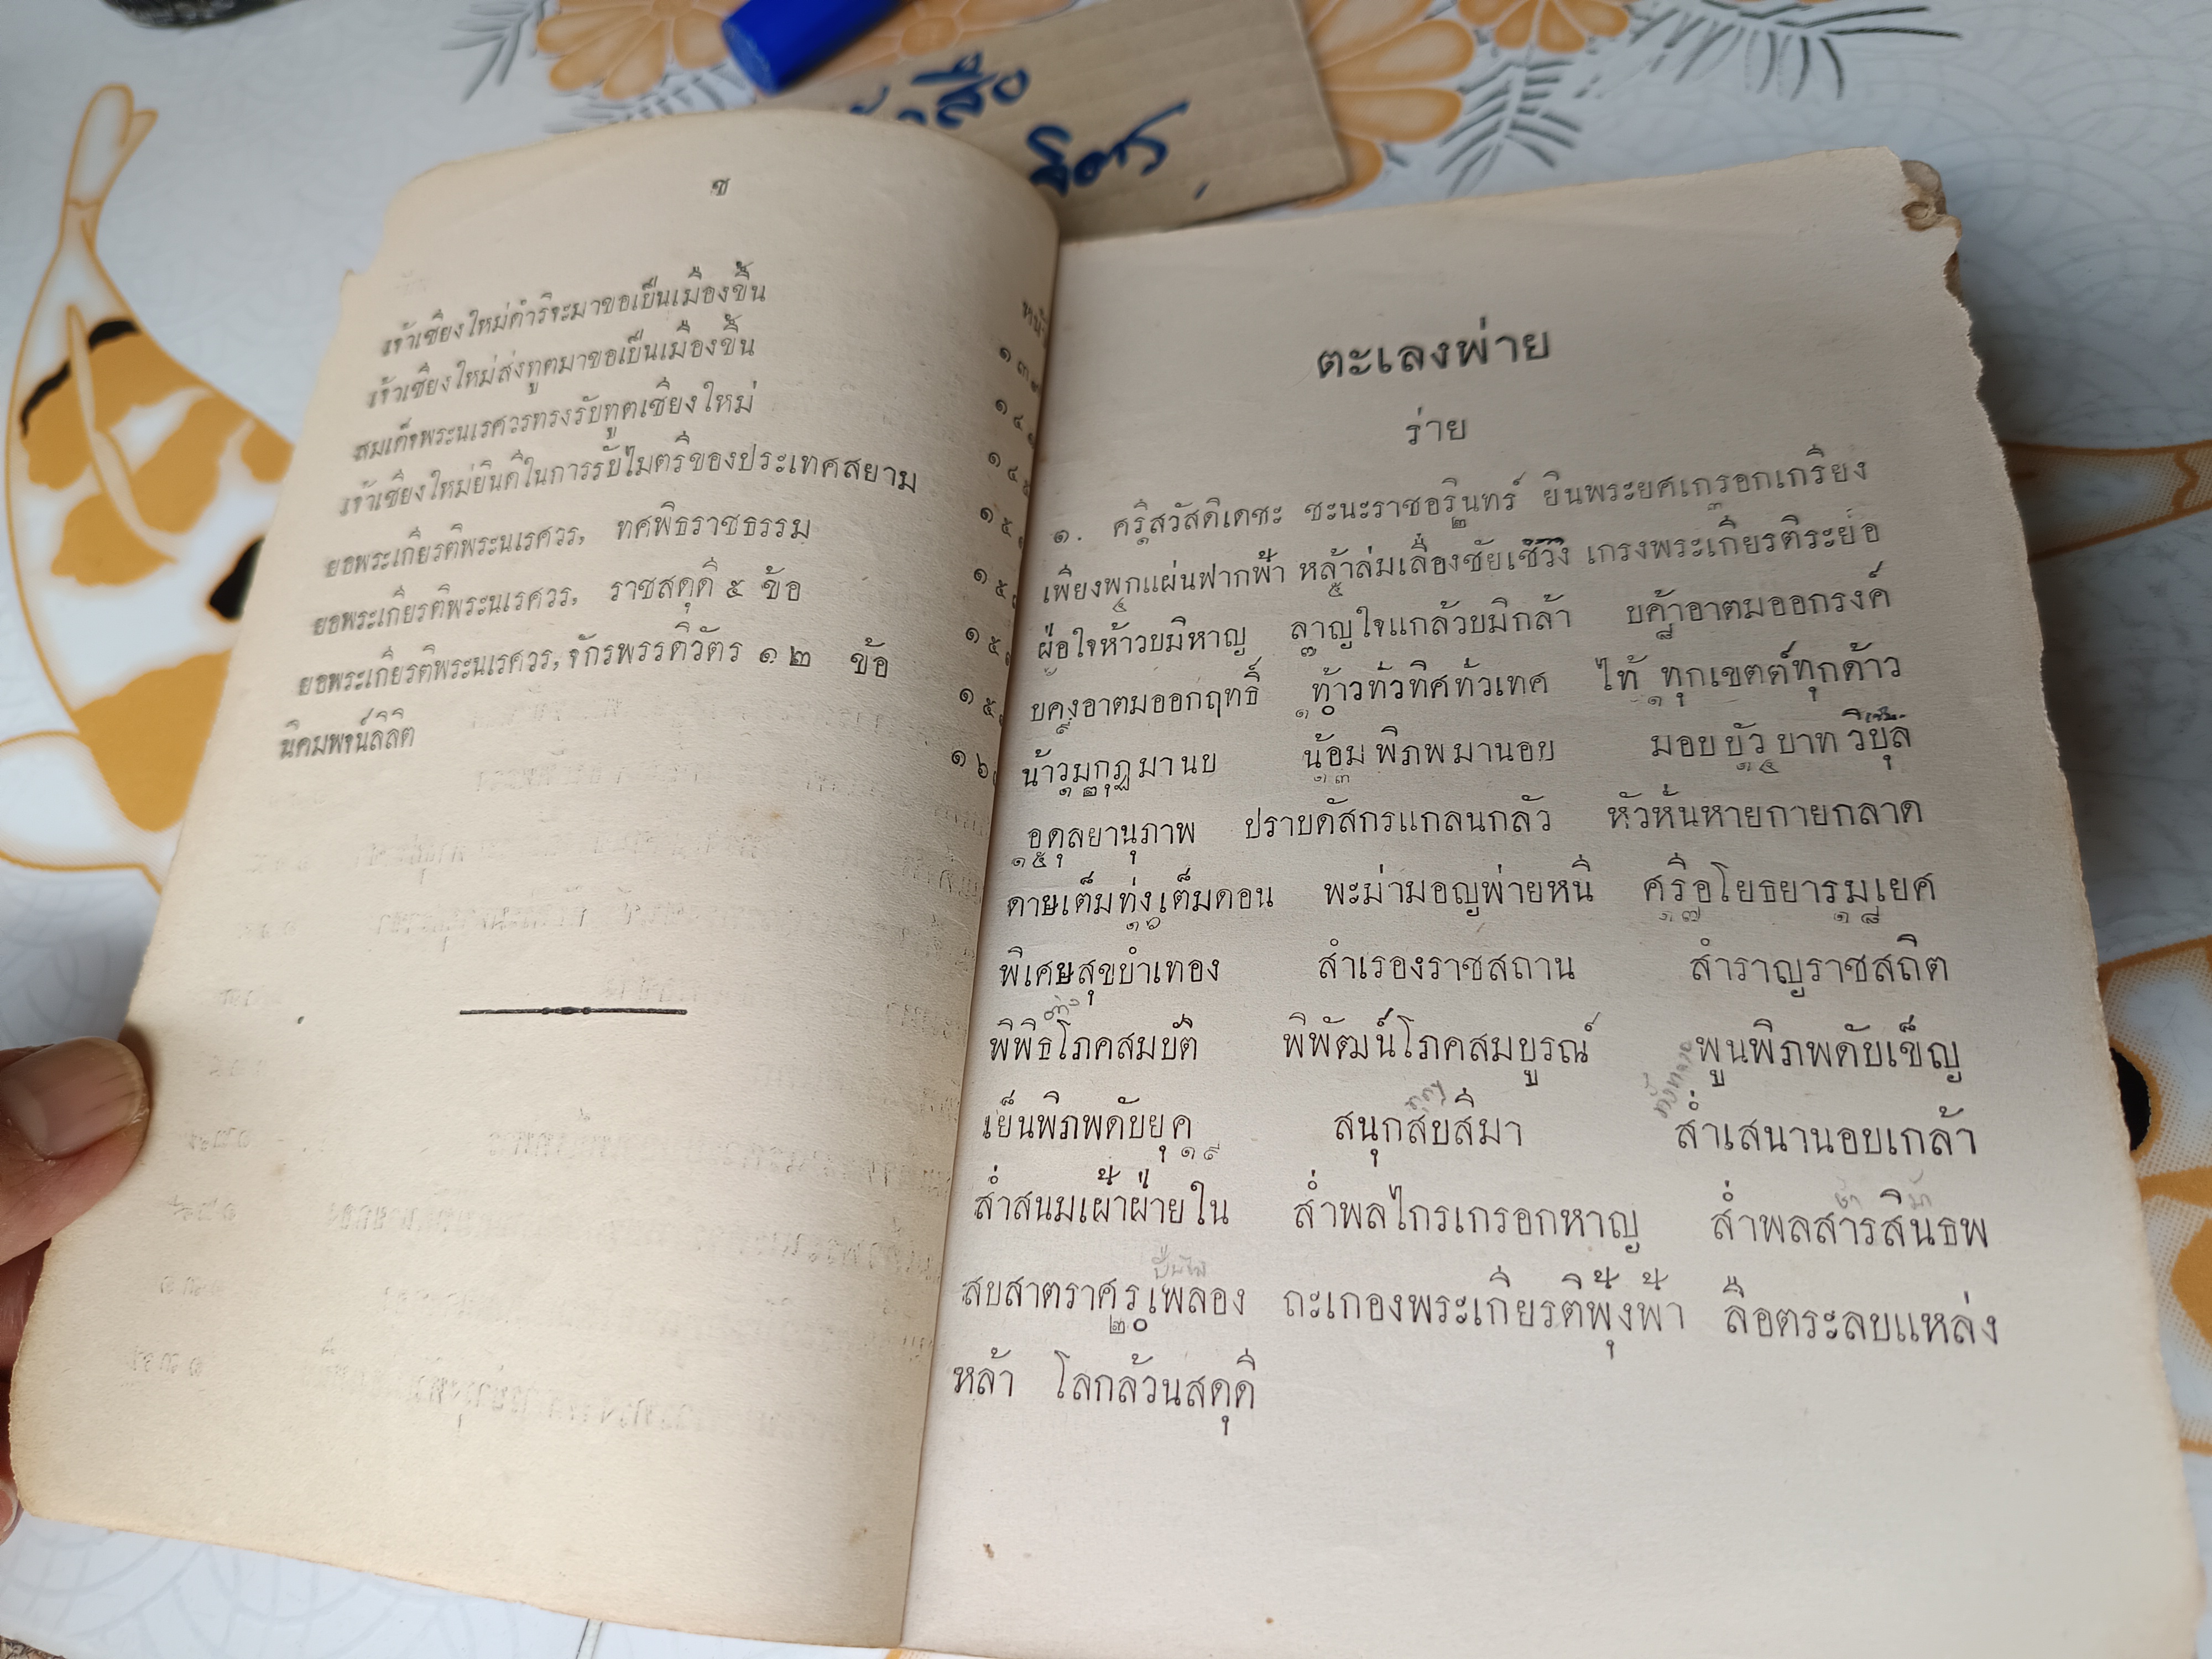 ช
หน้า
เจ้าเชียงใหม่ดำริจะมาขอเป็นเมืองขึ้น
เจ้าเชียงใหม่ส่งทูตมาขอเป็นเมืองขึ้น
สมเด็จพระนเรศวรทรงรับทูตเชียงใหม่
เจ้าเชียงใหม่ยินดีในการรับไมตรีของประเทศสยาม
ยอพระเกียรติพระนเรศวร, ทศพิธราชธรรม
ยอพระเกียรติพระนเรศวร, ราชสดุดี ๕ ข้อ
ยอพระเกียรติพระนเรศวร, จักรพรรดิวัตร ๑๒ ข้อ
นิคมพจน์ลิลิต
ตะเลงพ่าย
ร่าย
๑. ศรีสวัสดิเดชะ ชะนะราชอรินทร์ ยินพระยศเกรอกเกรียง
เพียงพกแผ่นฟากฟ้า หล้าล่มเลื่องชัยเชวง เกรงพระเกียรติระย่อ
ผ่อใจห้าวบมิหาญ ลาญใจแกล้วบมิกล้า บค้าอาตมออกรงค์
บคงอาตมออกฤทธิ์ ท้าวทั่วทิศทั่วเทศ ไท้ ทุกเขตต์ทุกด้าว
น้าวมกุฏมานบ น้อมพิภพมานอบ มอบบัวบาทวิบุล
อดุลยานุภาพ ปราบดัสกรแกลนกลัว หัวหั่นหายกายกลาด
ดาษเต็มท่งเต็มดอน พะม่ามอญพ่ายหนี ศรีอโยธยารมเยศ
พิเศษสุขบำเทอง สำเรองราชสถาน สำราญราชสถิต
พิพิธโภคสมบัติ พิพัฒน์โภคสมบูรณ์ พูนพิภพดับเข็ญ
เย็นพิภพดับยุค สนุกสบสีมา ส่ำเสนานอบเกล้า
ส่ำสนมเฝ้าฝ่ายใน ส่ำพลไกรเกรอกหาญ ส่ำพลสารสินธพ
สบสาตราศรเพลอง ถะเกองพระเกียรติฟุ้งฟ้า ลือตระลบแหล่ง
หล้า โลกล้วนสดุดี